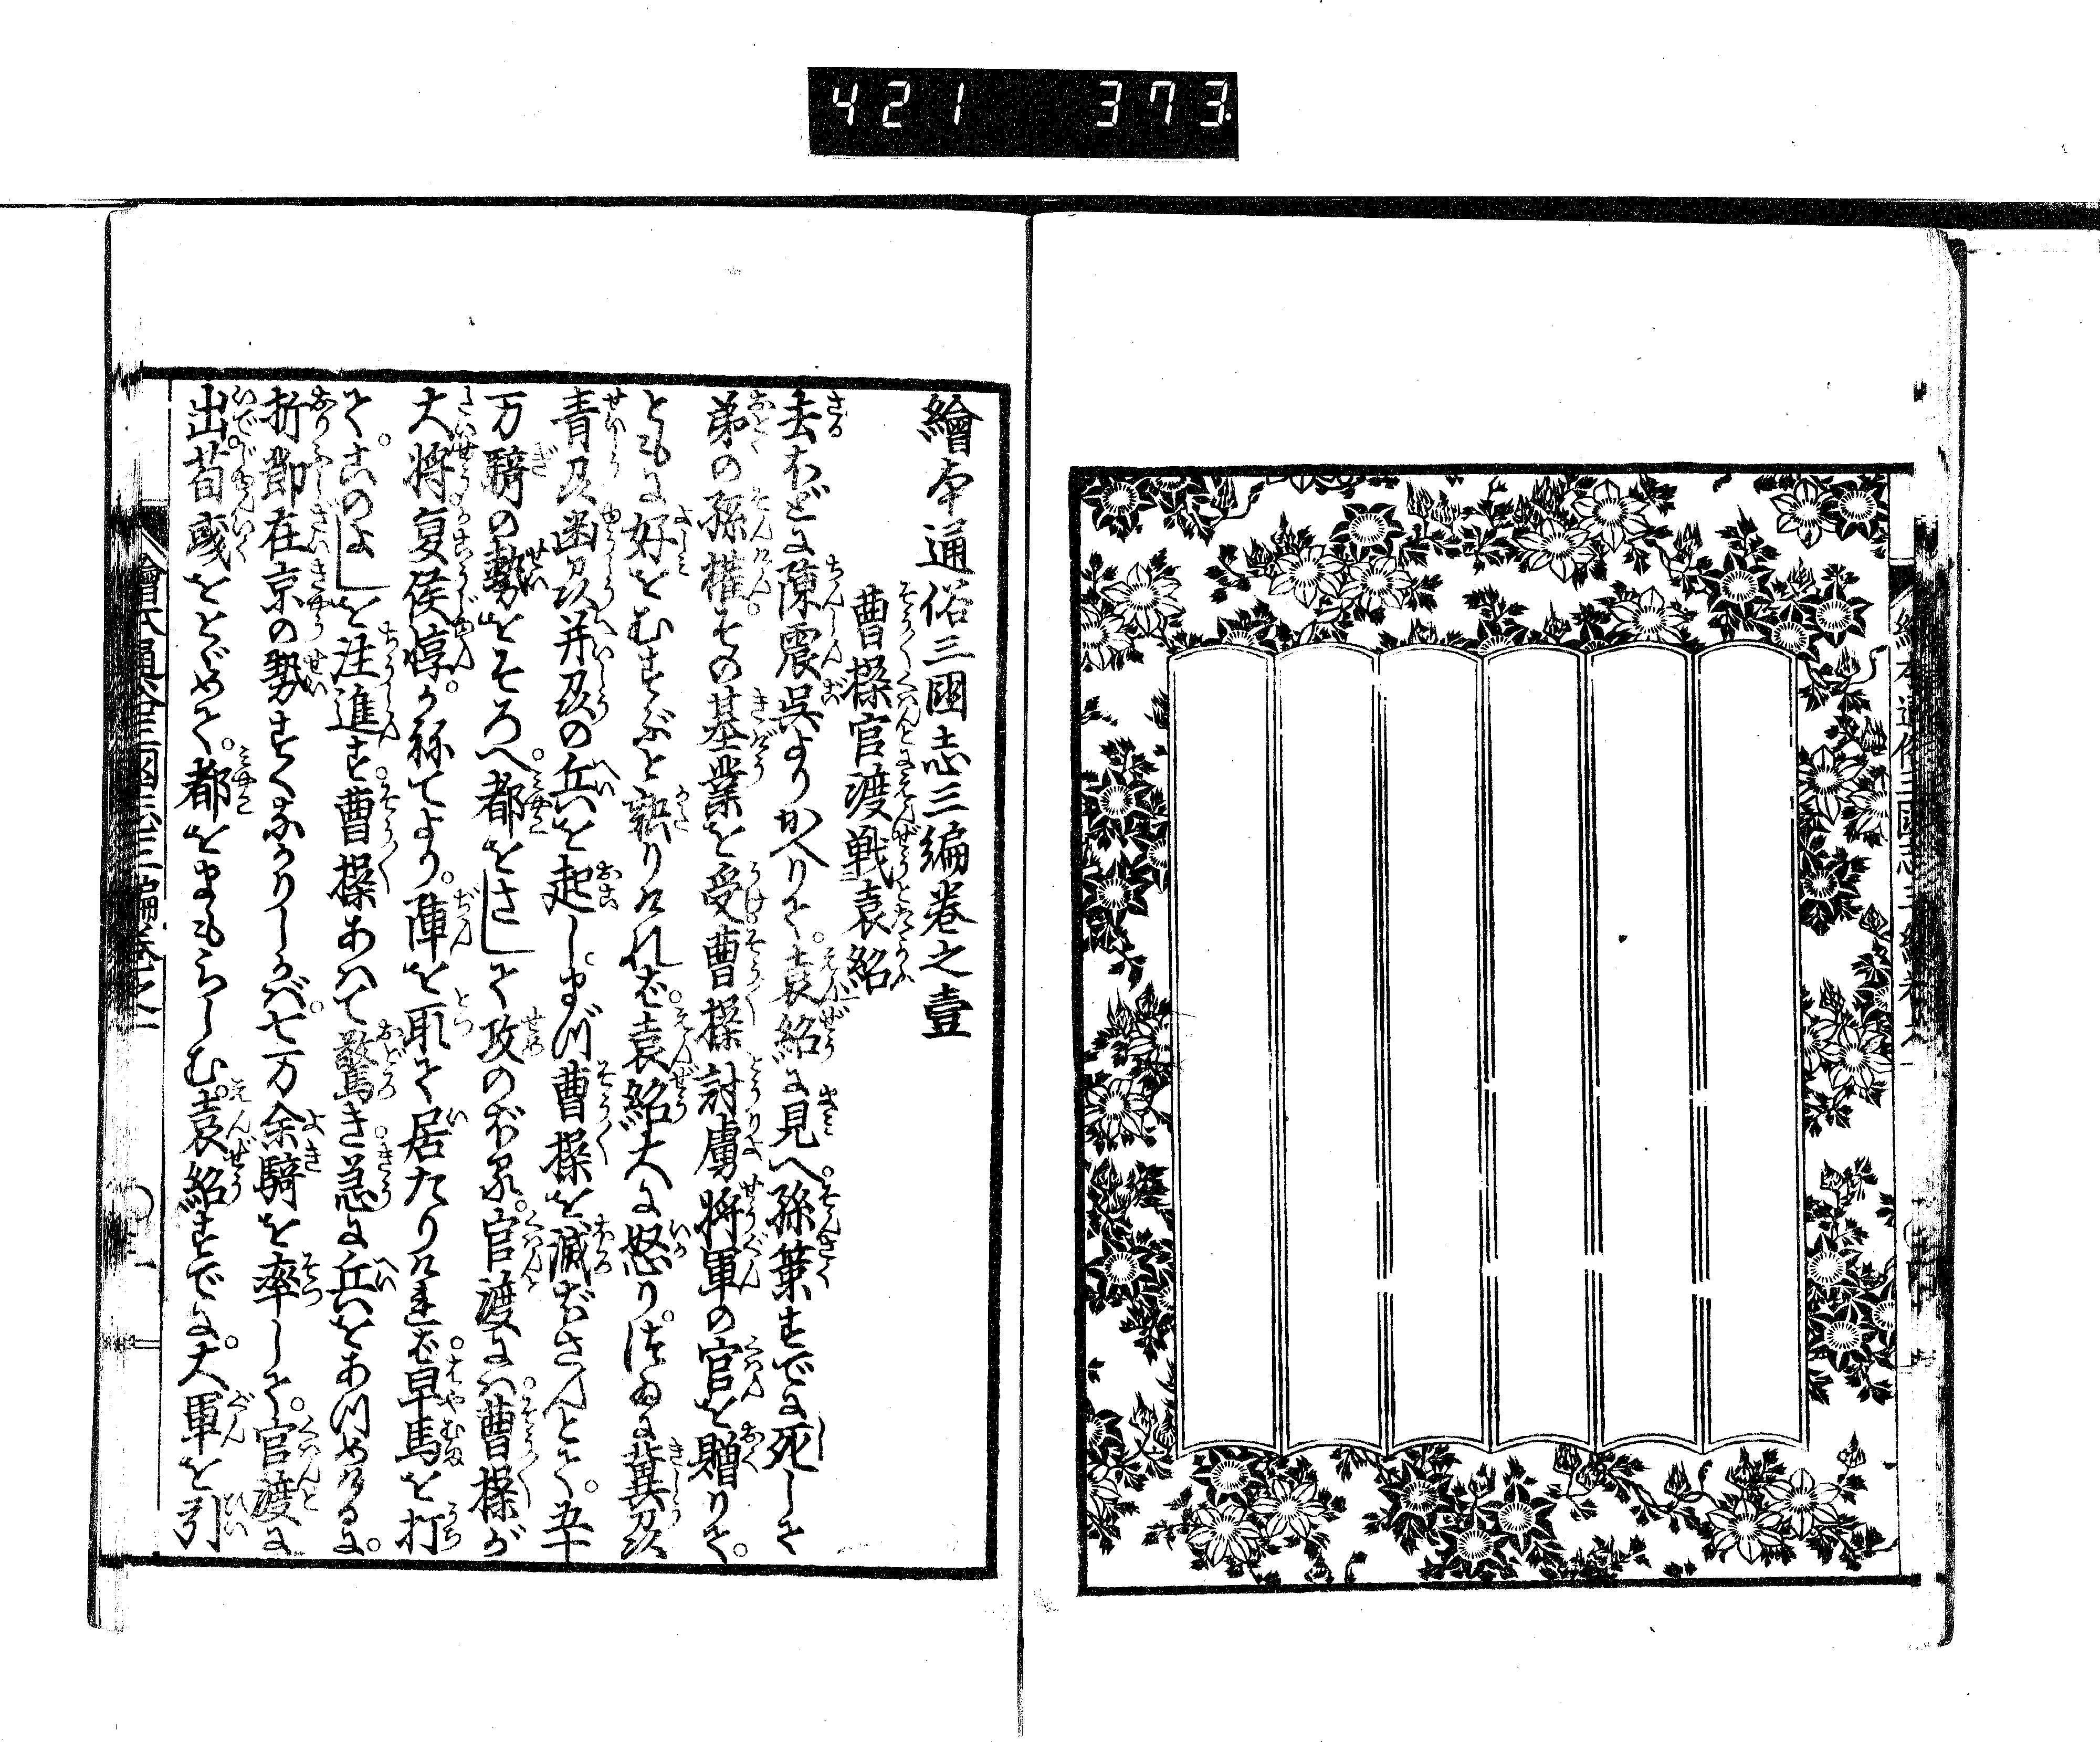 421 373
繪本通俗三國志三編巻之壹
曹操官渡戦袁紹
去ほどに陳震呉よりかへりて。袁紹に見へ。孫策すでに死して
弟の孫権。その基業を受。曹操討虜将軍の官を贈りて。
ともに好をむすぶと語りければ。袁紹大に怒り。つゐに冀州
青州幽州并州の兵を起し。まづ曹操を滅ぼさんとて。五十
万騎の勢をそろへ。都をさして攻のぼる。官渡には。曹操が
大将夏侯惇。かねてより。陣を取て居たりければ。早馬を打
て。このよしを注進す。曹操あはて驚き。急に兵をあつめけるに。
折節在京の勢すくなかりしかば。七万余騎を率して。官渡に
出。荀彧をとゞめて。都をまもらしむ。袁紹すでに。大軍を引
繪本通俗三國志三編巻之一